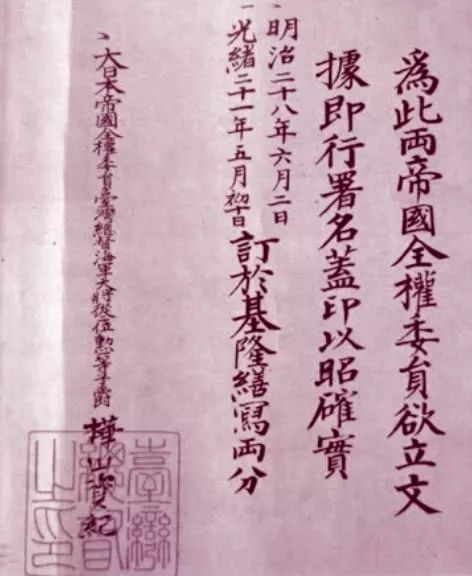 爲此兩帝國全權委員欲立文
據即行署名蓋印以昭確實
明治二十八年六月二日
光緒二十一年五月初十日
訂於基隆繕寫兩分
大日本帝國全權委員臺灣總督海軍大將從二位勳一等子爵 樺山資紀
臺灣總督之印